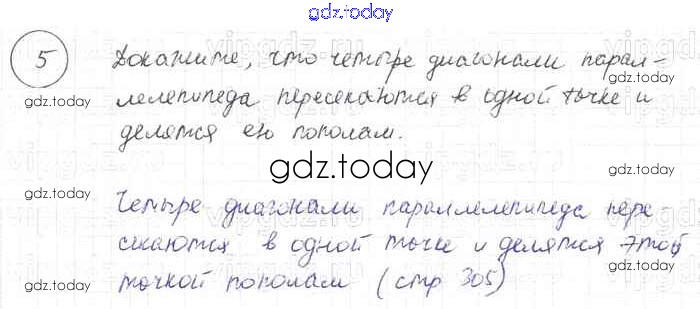 gdz.today
5 Докажите, что четыре диагонали парал-
лелепипеда пересекаются в одной точке и
делятся ею пополам.
gdz.today
Четыре диагонали параллелепипеда пере-
секаются в одной точке и делятся этой
точкой пополам (стр 305)
gdz.today
gdz.today
gdz.today
gdz.today
gdz.today
gdz.today